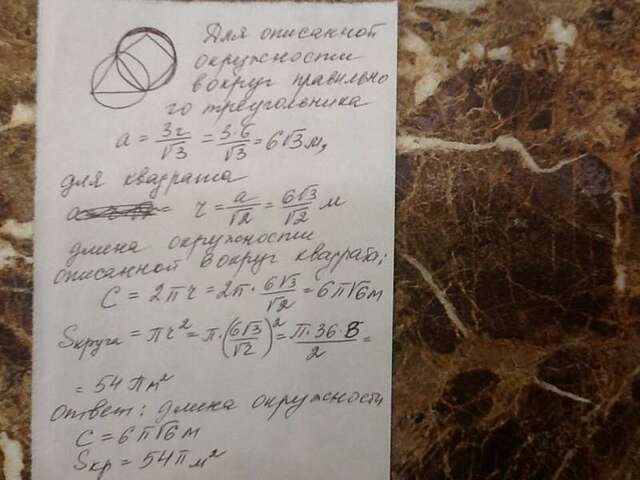 Для описанной
окружности
вокруг правильно
го треугольника
a = 3r/√3 = 3·6/√3 = 6√3 м,
для квадрата
r = a/√2 = 6√3/√2 м
длина окружности
описанной вокруг квадрата:
C = 2πr = 2π · 6√3/√2 = 6π√6 м
Sкруга = πr² = π·(6√3/√2)² = π·36·3/2 =
= 54 π м²
Ответ: длина окружности
C = 6π√6 м
Sкр = 54π м²